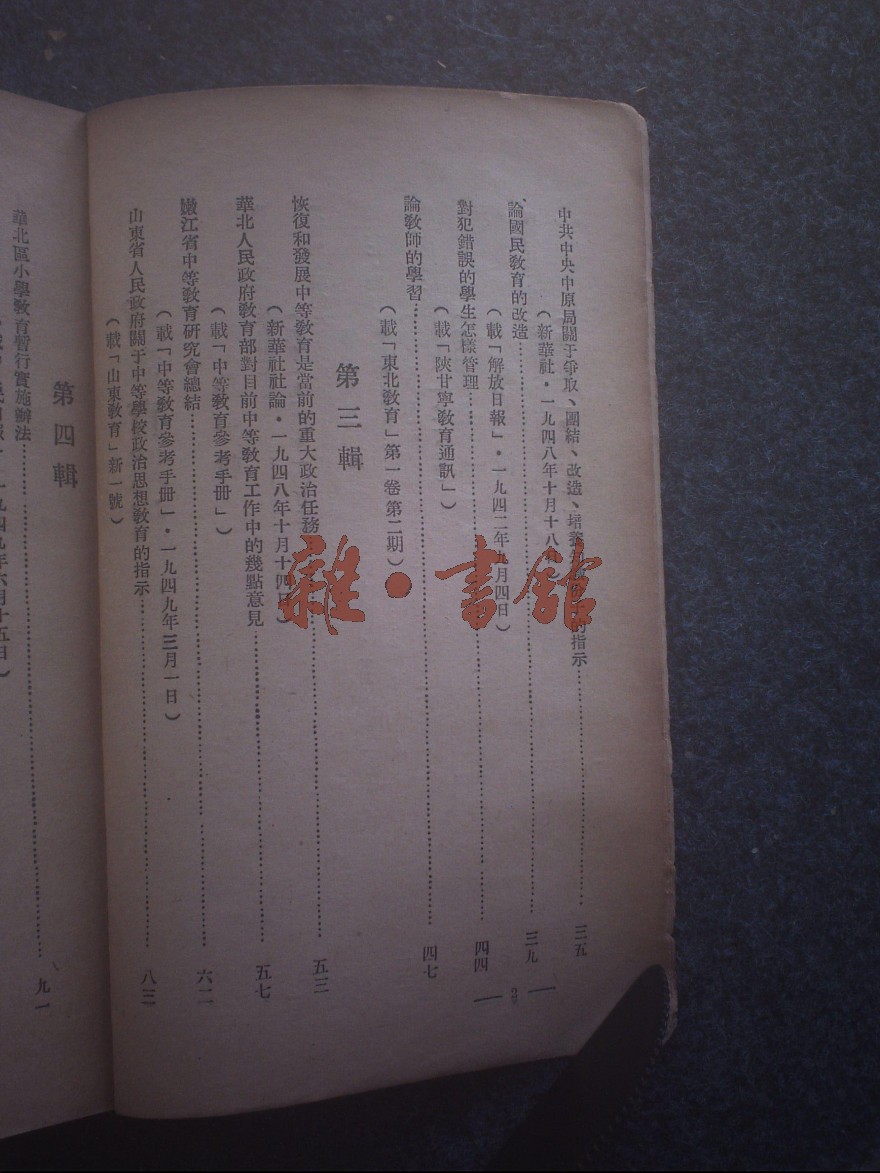 中共中央中原局關于爭取、團結、改造、培養的指示……三五
(新華社・一九四八年十月十八日)
論國民教育的改造……三九
(載「解放日報」・一九四二年九月四日)
對犯錯誤的學生怎樣管理……四四
(載「陝甘寧教育通訊」)
論教師的學習……四七
(載「東北教育」第一卷第二期)
第三輯
恢復和發展中等教育是當前的重大政治任務……五三
(新華社社論・一九四八年十月十四日)
華北人民政府教育部對目前中等教育工作中的幾點意見……五七
(載「中等教育參考手冊」)
嫩江省中等教育研究會總結……六二
(載「中等教育參考手冊」・一九四九年三月一日)
山東省人民政府關于中等學校政治思想教育的指示……八三
(載「山東教育」新一號)
第四輯
華北區小學教育暫行實施辦法……九一
一九四九年六月十五日)
雜・書館